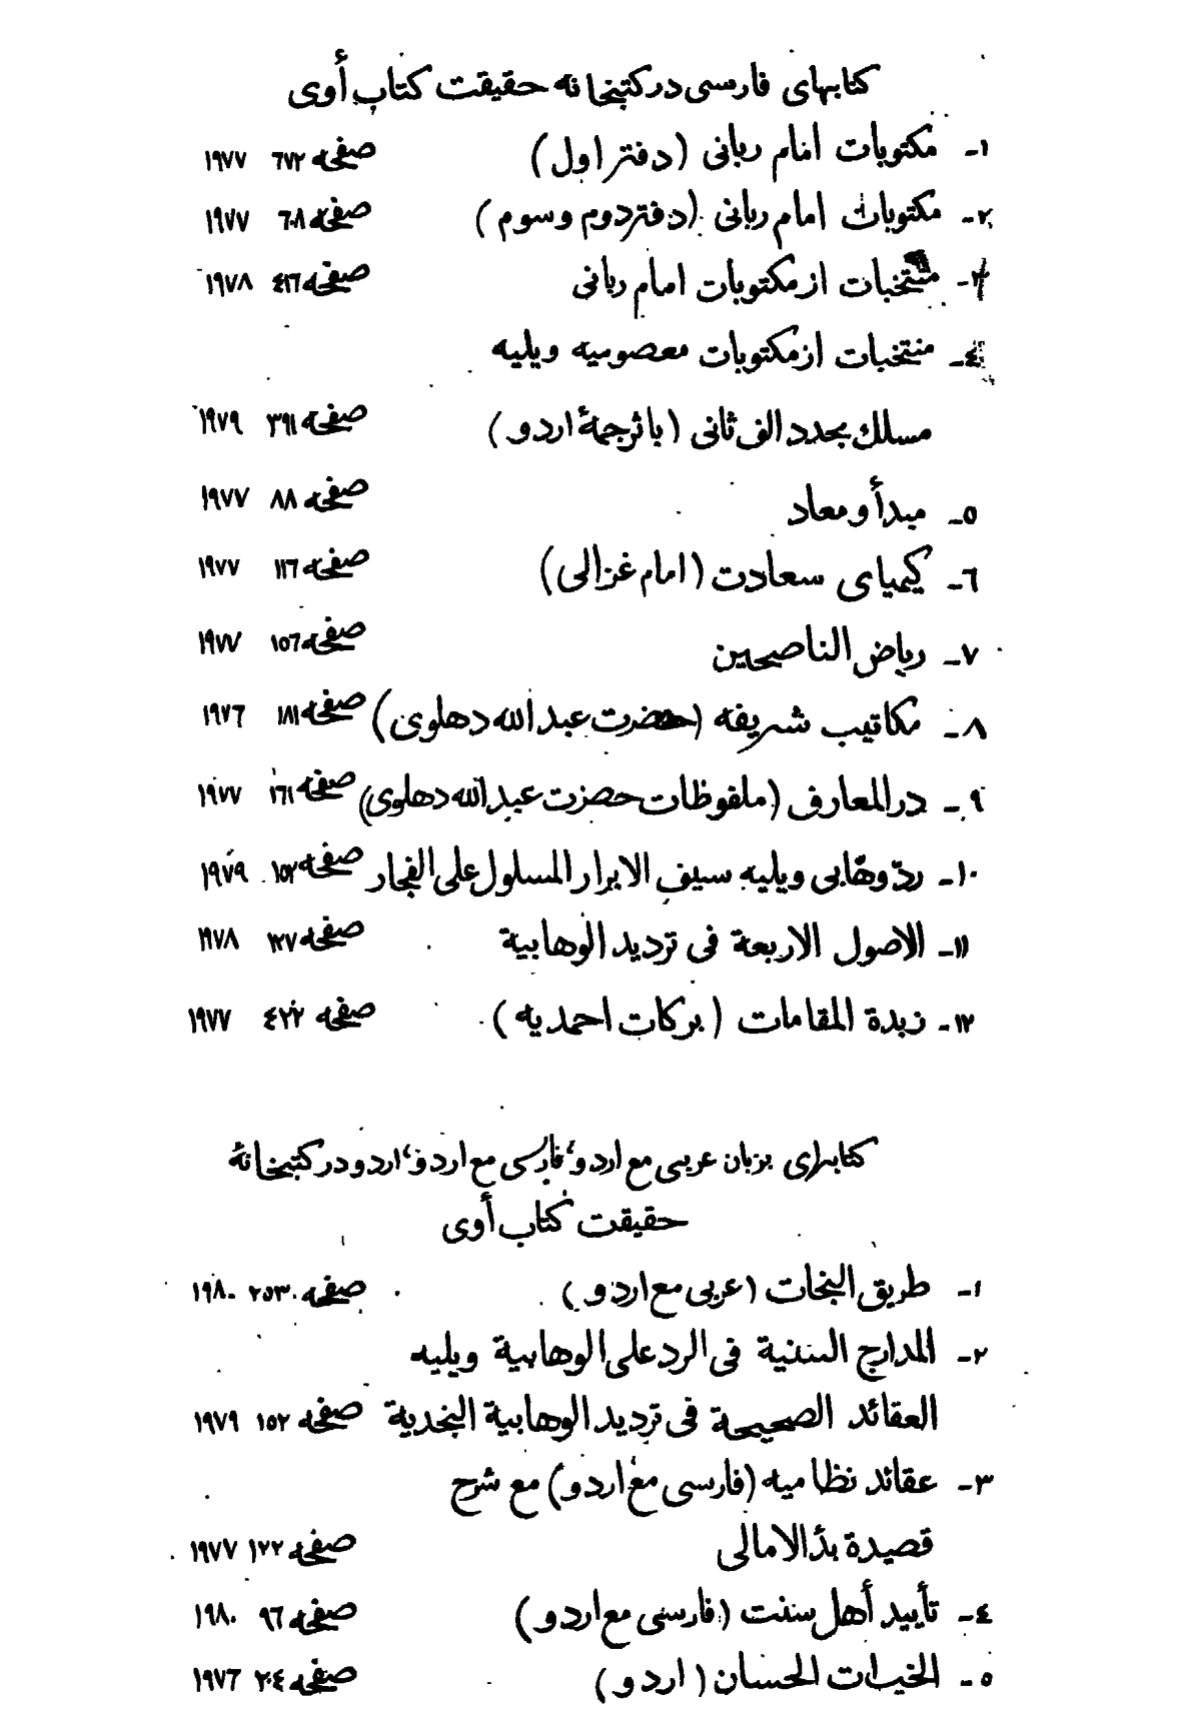 کتابهای فارسی درکتبخانه حقیقت کتاب أوی
١- مکتوبات امام ربانی (دفتر اول) صفحه ٦٧٢ ١٩٧٧
٢- مکتوبات امام ربانی (دفتر دوم و سوم) صفحه ٦٠٨ ١٩٧٧
٣- منتخبات از مکتوبات امام ربانی صفحه ٤١٦ ١٩٧٨
٤- منتخبات از مکتوبات معصومیه ویلیه
مسلك مجدد الف ثانی (با ترجمهٔ اردو) صفحه ٣٩١ ١٩٧٩
٥- مبدأ و معاد صفحه ٨٨ ١٩٧٧
٦- کیمیای سعادت (امام غزالی) صفحه ١١٦ ١٩٧٧
٧- ریاض الناصحین صفحه ١٥٦ ١٩٧٧
٨- مکاتیب شریفه (حضرت عبد الله دهلوی) صفحه ١٨١ ١٩٧٦
٩- درالمعارف (ملفوظات حضرت عبد الله دهلوی) صفحه ١٦١ ١٩٧٧
١٠- ردّ وهّابی ویلیه سیف الابرار المسلول علی الفجار صفحه ١٥٢ ١٩٧٩
١١- الاصول الاربعة فی تردید الوهابیة صفحه ١٢٧ ١٩٧٨
١٢- زبدة المقامات (برکات احمدیه) صفحه ٤٢٢ ١٩٧٧
کتابهای بزبان عربی مع اردو، فارسی مع اردو، اردو در کتبخانهٔ
حقیقت کتاب أوی
١- طریق النجات (عربی مع اردو) صفحه ٢٥٣ ١٩٨٠
٢- المدارج السنیة فی الرد علی الوهابیة ویلیه
العقائد الصحیحة فی تردید الوهابیة النجدیة صفحه ١٥٢ ١٩٧٩
٣- عقائد نظامیه (فارسی مع اردو) مع شرح
قصیدة بدٔ الامالی صفحه ١٢٢ ١٩٧٧
٤- تأیید أهل سنت (فارسی مع اردو) صفحه ٩٦ ١٩٨٠
٥- الخیرات الحسان (اردو) صفحه ٢٠٤ ١٩٧٦